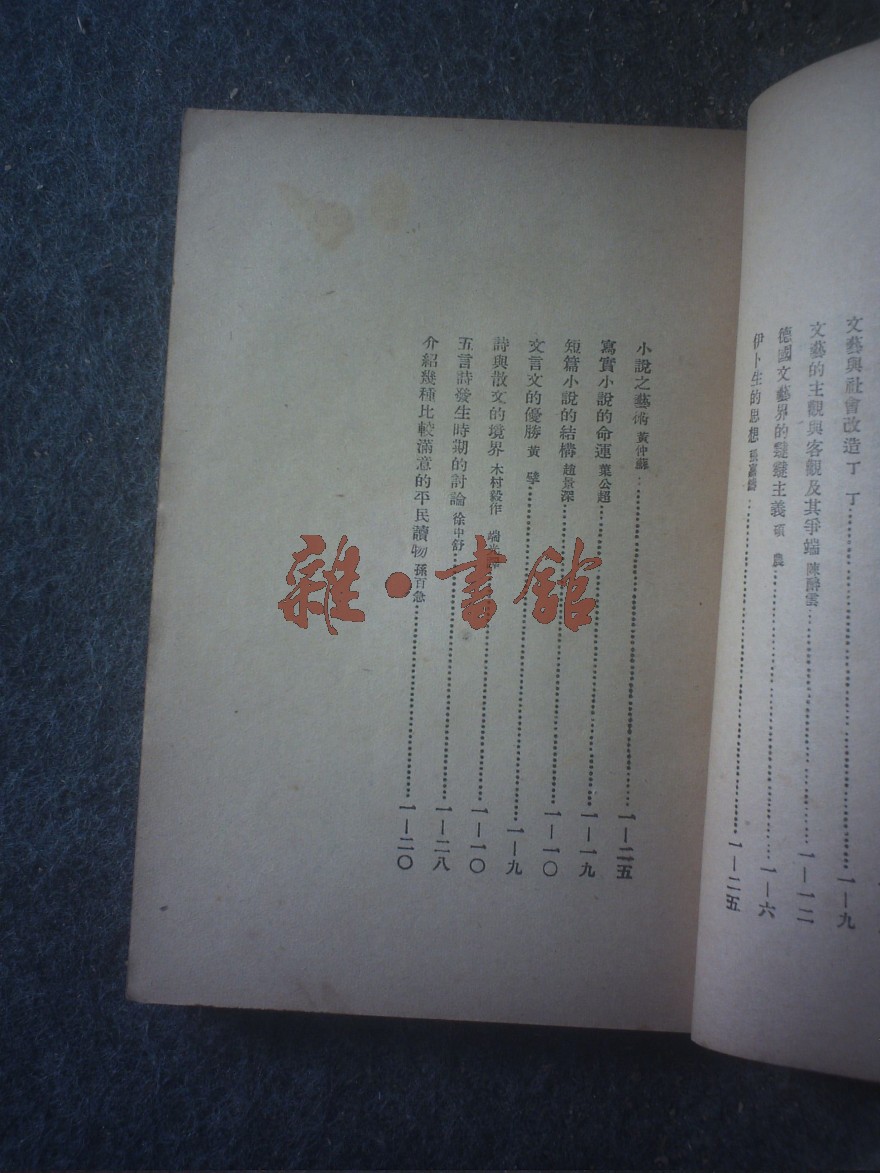 文藝與社會改造 丁丁……一—九
文藝的主觀與客觀及其爭端 陳醉雲……一—一二
德國文藝界的韃韃主義 碩農……一—六
伊卜生的思想……一—二五
小說之藝術 黃仲蘇……一—二五
寫實小說的命運 葉公超……一—一九
短篇小說的結構 趙景深……一—一〇
文言文的優勝 黃……一—九
詩與散文的境界 木村毅作 端……一—一〇
五言詩發生時期的討論 徐中舒……一—二八
介紹幾種比較滿意的平民讀物 孫百急……一—二〇
雜·書館